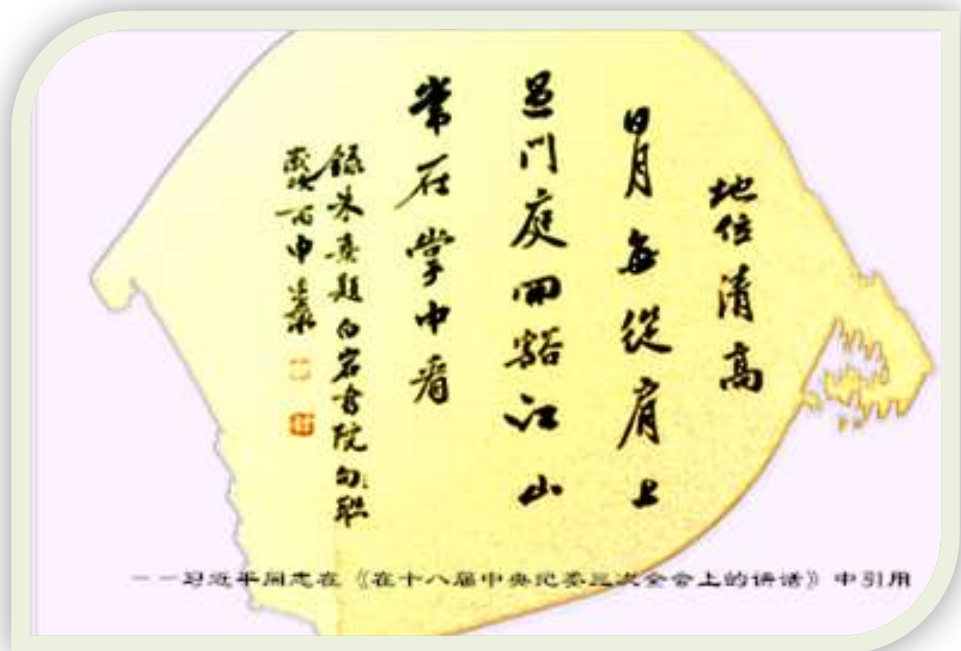 地位清高
日月每從肩上
過門庭開豁江山
常在掌中看
錄朱熹題白岩書院句聯
歲次丙申
——习近平同志在《在十八届中央纪委三次全会上的讲话》中引用